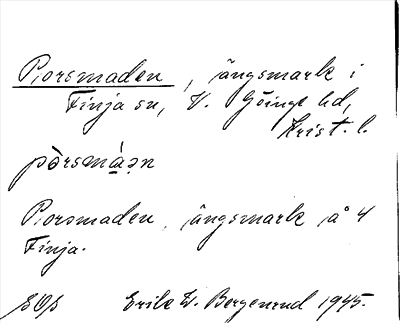 Porsmaden, ängsmark i
Finja sn, V. Göinge hd,
Krist. l.
pòrsmàən
Porsmaden, ängsmark å 4
Finja.
Erik W. Bergenrud 1945.